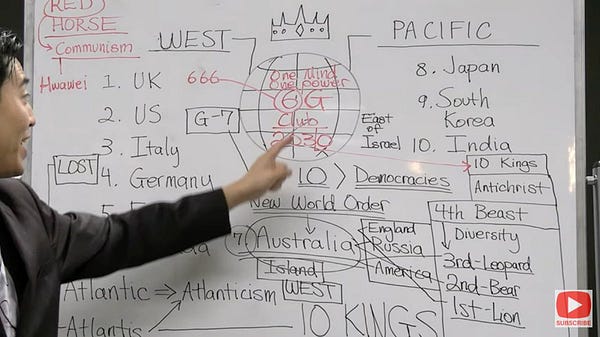 RED
HORSE
Communism
Hwawei
WEST
PACIFIC
1. UK
2. US
3. Italy
4. Germany
5.
LOST
666
G-7
One Mind
One power
6G
Club
2030
East
of
Israel
8. Japan
9. South
Korea
10. India
10 Kings
Antichrist
10 > Democracies
New World Order
7 Australia
Island
WEST
England
Russia
America
4th Beast
Diversity
3rd-Leopard
2nd-Bear
1st-Lion
Atlantic ⇒ Atlanticism
Atlantis
10 KINGS
SUBSCRIBE